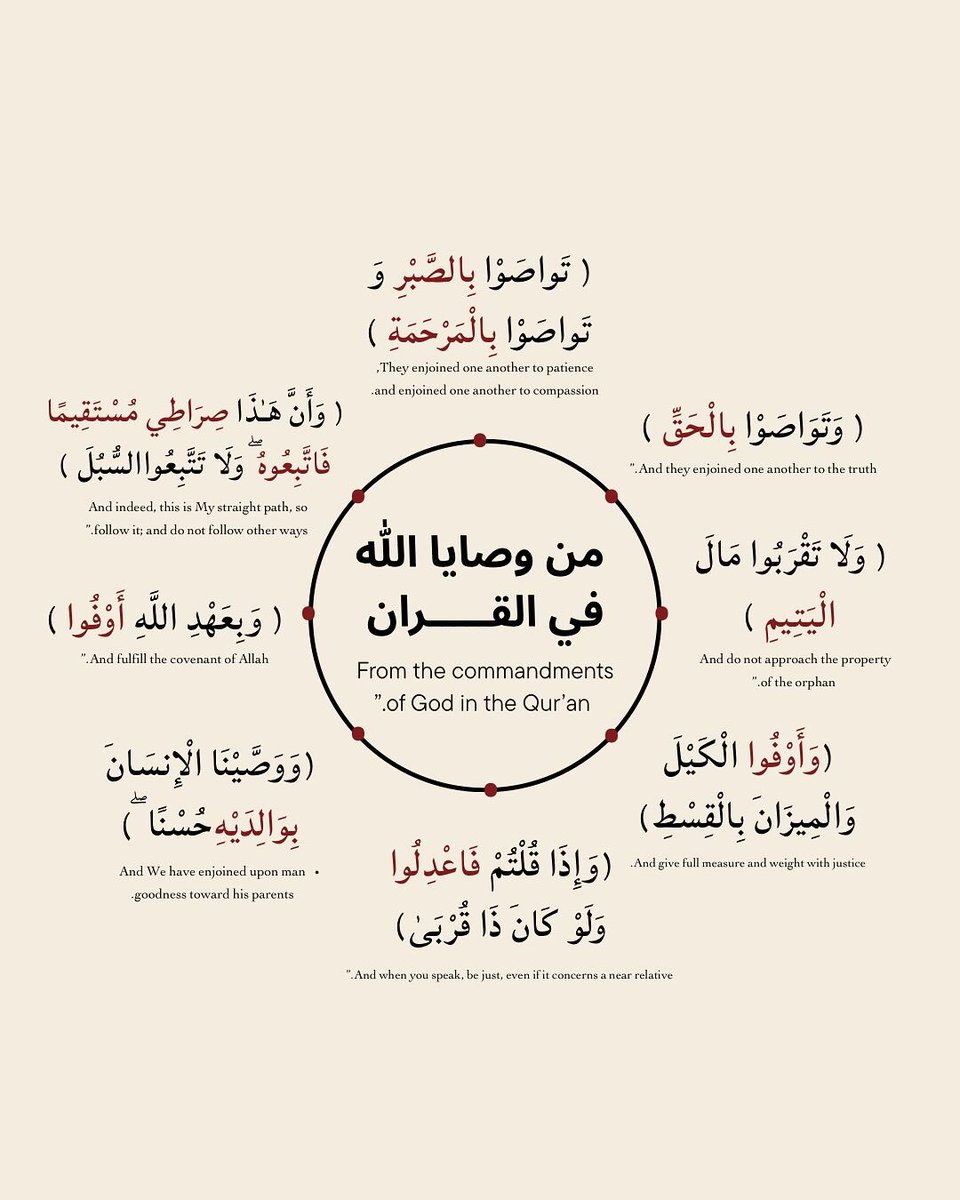 ( تَواصَوْا بِالصَّبْرِ وَ
تَواصَوْا بِالْمَرْحَمَةِ )
,They enjoined one another to patience
.and enjoined one another to compassion
( وَتَوَاصَوْا بِالْحَقِّ )
”.And they enjoined one another to the truth
( وَلَا تَقْرَبُوا مَالَ
الْيَتِيمِ )
And do not approach the property
”.of the orphan
(وَأَوْفُوا الْكَيْلَ
وَالْمِيزَانَ بِالْقِسْطِ)
.And give full measure and weight with justice
(وَإِذَا قُلْتُمْ فَاعْدِلُوا
وَلَوْ كَانَ ذَا قُرْبَىٰ)
”.And when you speak, be just, even if it concerns a near relative
(وَوَصَّيْنَا الْإِنسَانَ
بِوَالِدَيْهِ حُسْنًا ۖ )
And We have enjoined upon man •
.goodness toward his parents
( وَبِعَهْدِ اللَّهِ أَوْفُوا )
”.And fulfill the covenant of Allah
( وَأَنَّ هَـٰذَا صِرَاطِي مُسْتَقِيمًا
فَاتَّبِعُوهُ ۖ وَلَا تَتَّبِعُوا السُّبُلَ )
And indeed, this is My straight path, so
”.follow it; and do not follow other ways
من وصايا الله
في القـــــران
From the commandments
”.of God in the Qur’an